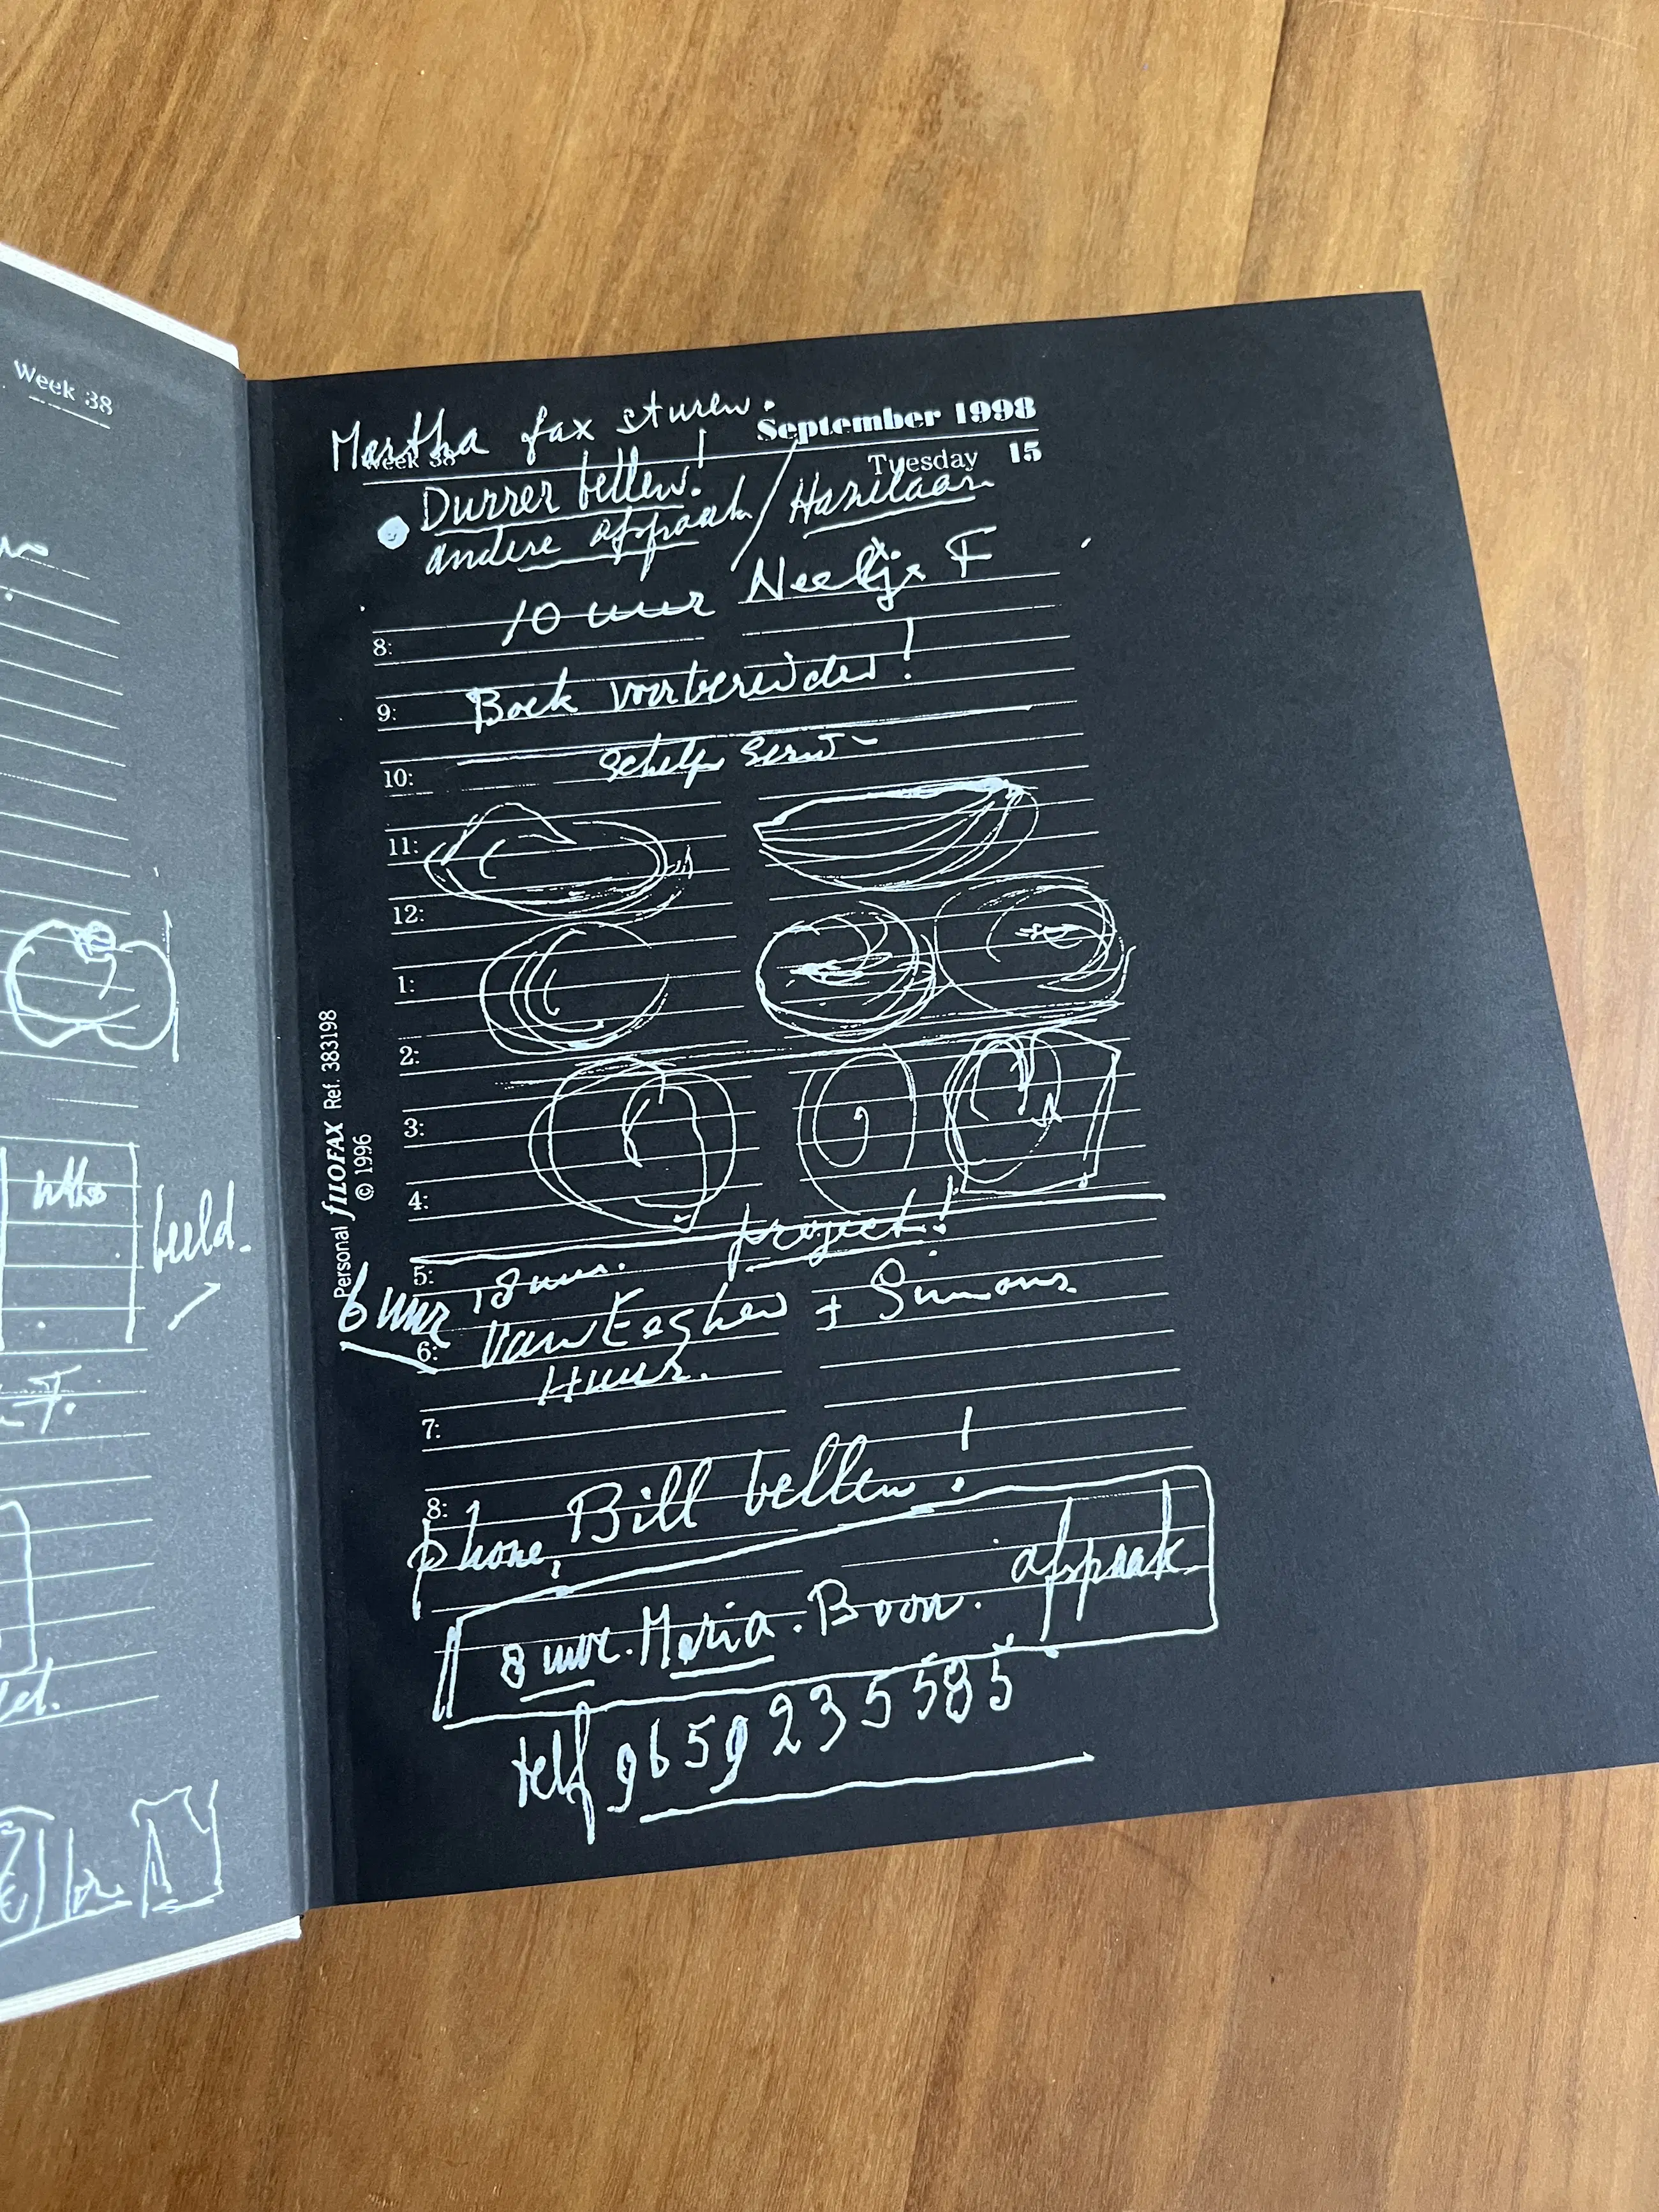 Week 38
beeld.
Martha fax sturen.
September 1998
Week 38
Tuesday 15
Durrer bellen!
andere afspraak / Hazelaan
10 uur Neeltje F
8:
Boek voorbereiden!
9:
Schelp Serv
10:
11:
12:
1:
2:
3:
4:
project!
5:
18 uur.
6 uur Van Eeghen + Simons
6:
Huur.
7:
8:
phone, Bill bellen!
8 uur. Maria. Boon. afspraak
telf 9659235585
Personal FILOFAX Ref. 383198
© 1996